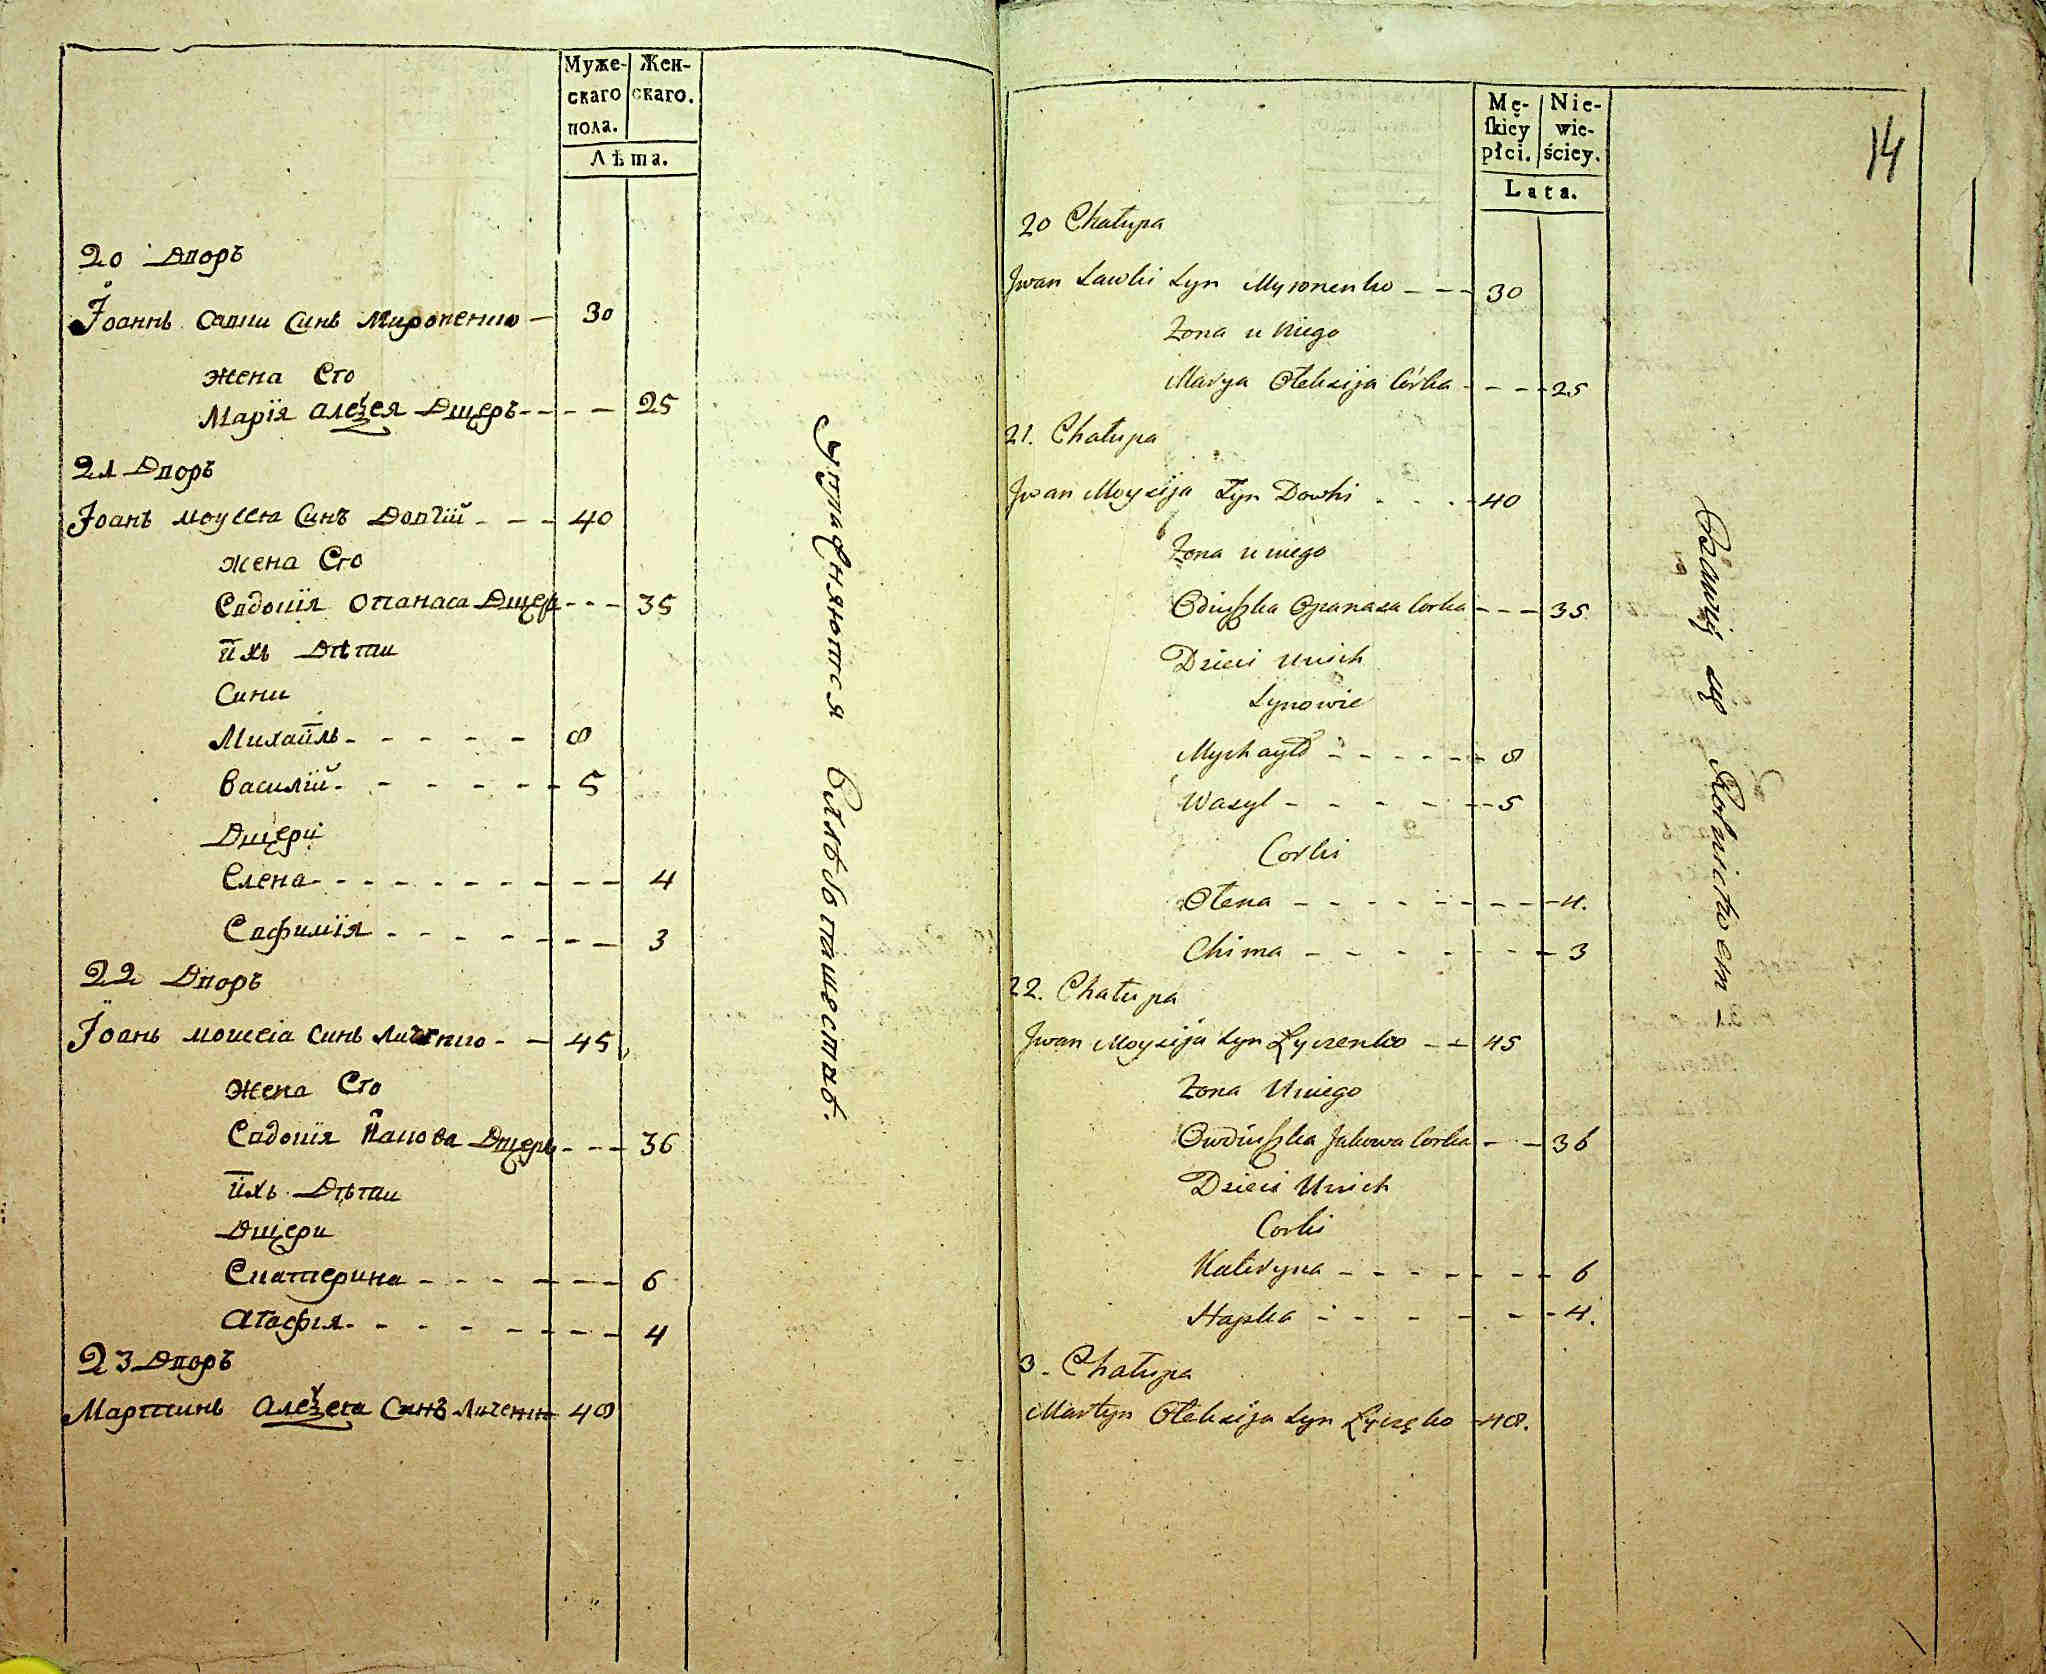 Муже- Жен-
скаго скаго.
пола.
Лѣта.
20 Дворъ
Іоаннъ Савки Синъ Мироненко - 30
жена Єго
Марїя Алеѯея Дщеръ - - - - 25
21 Дворъ
Іоанъ Моусея Синъ Довгій - - - 40
жена Єго
Євдокїя Опанаса Дщер - - - 35
ихъ Дѣти
Сини
Михайлъ - - - - - 8
Василїй - - - - - 5
Дщери
Єлена - - - - - - - - - 4
Євфимїя - - - - - - - 3
22 Дворъ
Іоанъ Мойсеіа Синъ Личенко - - 45
Жена Єго
Євдокїя Якова Дщерь - - - 36
ихъ Дѣти
Дщери
Єкатерина - - - - - - 6
Агафія - - - - - - - 4
23 Дворъ
Мартинъ Алеѯея Синъ Личенко 48
Упражняются в хлѣбопашествѣ.
14
Mę- Nie-
skiey wie-
płci. ściey.
Lata.
20 Chałupa
Jwan Sawki Syn Myronenko - - - 30
Żona u niego
Marya Ołeksija Córka - - - - 25
21. Chałupa
Jwan Moysija Syn Dowhi - - - - 40
Żona u niego
Odiuszka Opanasa Corka - - - 35
Dzieci Unich
Synowie
Mychayło - - - - - - 8
Wasyl - - - - - - 5
Corki
Ołena - - - - - - - - - 4.
Chima - - - - - - - 3
22. Chałupa
Jwan Moysija Syn Łyczenko - - 45
Żona Uniego
Owdiuszka Jakowa Corka - - 36
Dzieci Unich
Corki
Kateryna - - - - - - - 6
Hapka - - - - - - - 4.
3. Chałupa
Martyn Ołeksija Syn Łyczęko - 48.
Bawią się Rolnictwem